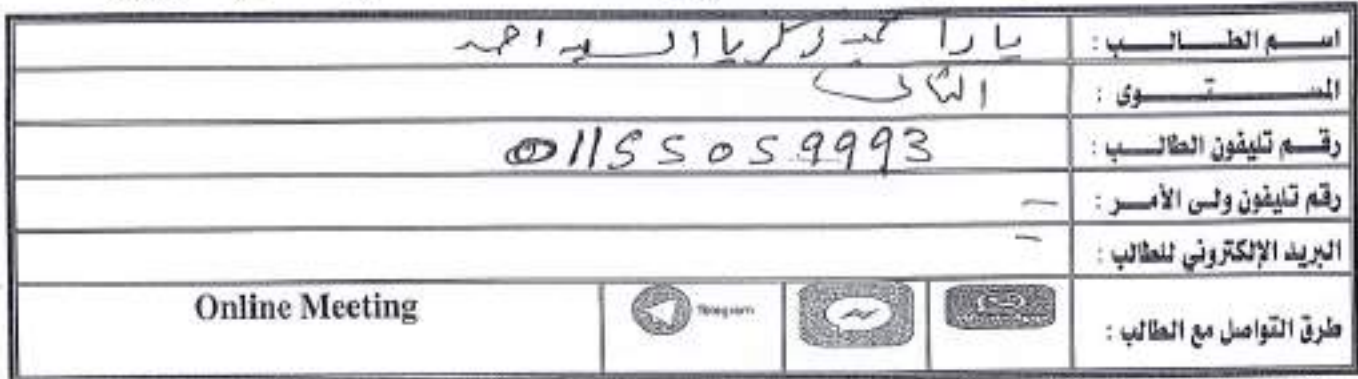 اسم الطالب : يارا محمد زكريا السيد احمد
المستوى : الثانى
رقم تليفون الطالب : 01155059993
رقم تليفون ولى الأمر : –
البريد الإلكتروني للطالب : –
طرق التواصل مع الطالب : Telegram Online Meeting